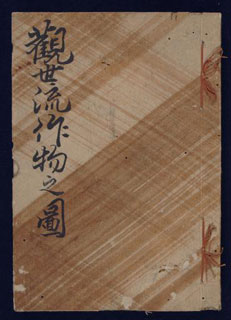 觀世流作物之圖